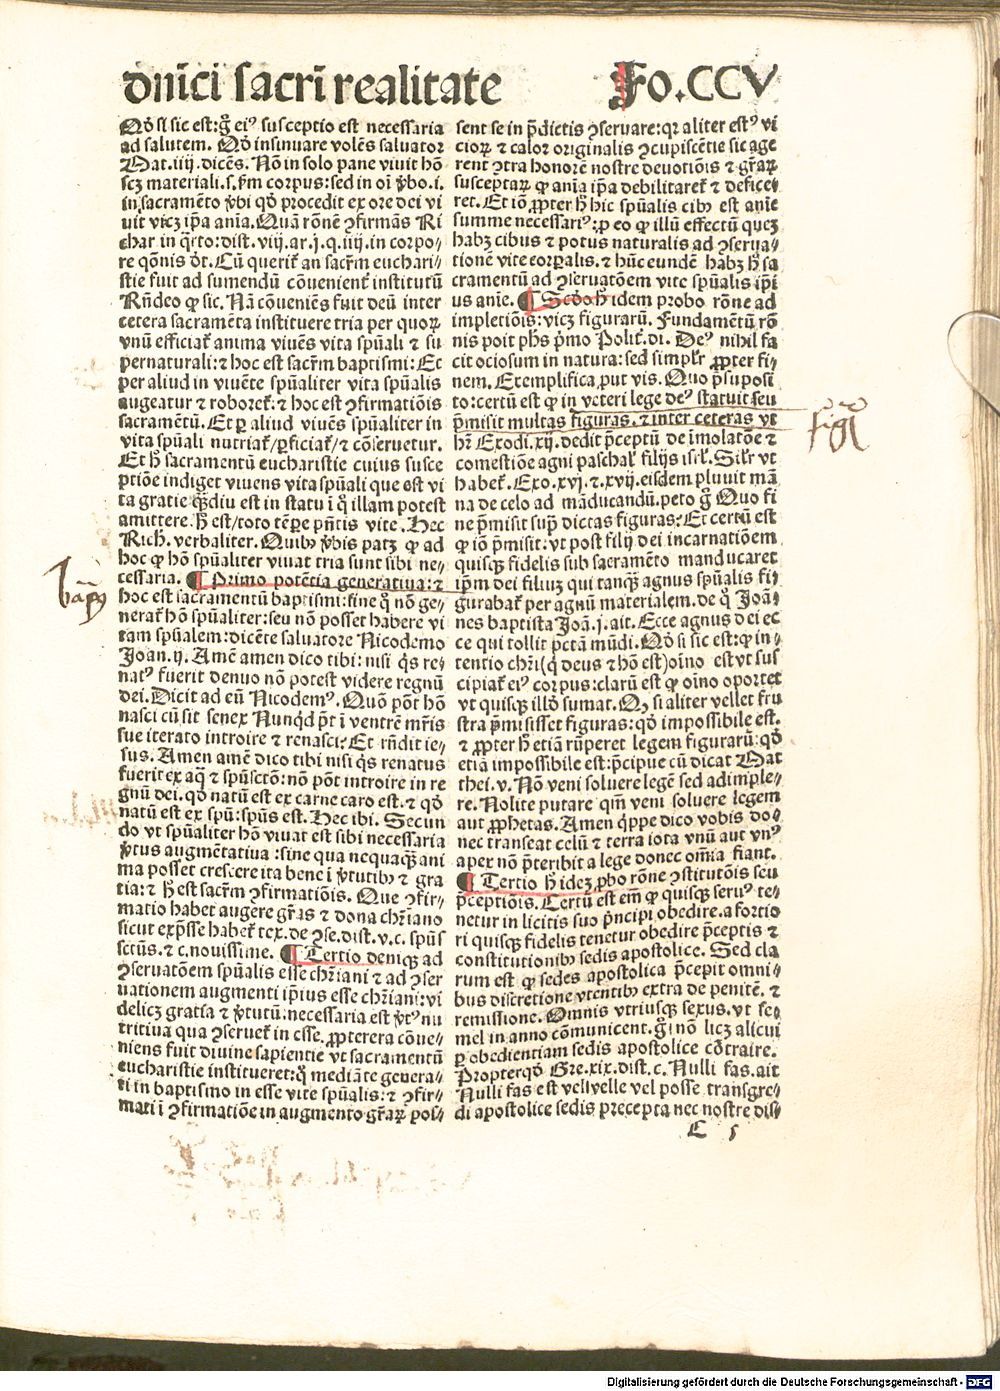 dn̄ici sacri realitate Fo.CCV
Qd̓ si sic est:g̊ ei⁹ susceptio est necessaria
ad salutem. Qd̓ insinuare volēs saluator
Mat.iiij.dicēs. Nō in solo pane viuit hō
scꝫ materiali.s.ꝑm corpus:sed in oī v̓bo.i.
in sacramēto v̓bi qd̓ procedit ex ore dei vi
uit vicꝫ ip̄a anīa. Quā rōnē ꝯfirmās Ri
char in q̄rto:dist.viij.ar.j.q.iiij.in corpo⸗
re q̄onis d̓t. Cū querit̄ an sacr̄m euchari⸗
stie fuit ad sumendū cōuenient̄ institutū
Rn̄deo ꝙ sic. Nā cōueniēs fuit deū inter
cetera sacramēta instituere tria per quoꝝ
vnū efficiat̄ anima viuēs vita spūali ⁊ su
pernaturali:⁊ hoc est sacr̄m baptismi: Et
per aliud in viuēte spūaliter vita spūalis
augeatur ⁊ roboret̄: ⁊ hoc est ꝯfirmatiōis
sacramētū. Et ꝑ aliud viuēs spūaliter in
vita spūali nutriat̄/ꝑficiat̄/⁊ cōseruetur.
Et h̓ sacramentū eucharistie cuius susce
ptiōe indiget viuens vita spūali que est vi
ta gratie q̄ꝫdiu est in statu ī q̊ illam potest
amittere. h̓ est/toto tēꝑe pn̄tis vite. Hec
Rich. verbaliter. Quibꝰ v̓bis patꝫ ꝙ ad
hoc ꝙ hō spūaliter viuat tria sunt sibi ne⸗
cessaria. ¶ Primo potētia generatiua: ⁊
hoc est sacramentū baptismi: sine q̊ nō ge⸗
nerat̄ hō spūaliter: seu nō posset habere vi
tam spūalem: dicēte saluatore Nicodemo
Joan.ij. Amē amen dico tibi: nisi q̄s re⸗
nat⁹ fuerit denuo nō potest videre regnū
dei. Dicit ad eū Nicodem⁹. Quō pōt hō
nasci cū sit senex Nunqd̓ p̄t ī ventrē mr̄is
sue iterato introire ⁊ renasci: Et rn̄dit ie⸗
sus. Amen amē dico tibi nisi q̄s renatus
fuerit ex aq̄ ⁊ spūsctō: nō pōt introire in re
gnū dei. qd̓ natū est ex carne caro est. ⁊ qd̓
natū est ex spū: spūs est. Hec ibi. Secun
do vt spūaliter hō viuat est sibi necessaria
v̓tus augmētatiua : sine qua nequaqꝫ ani
ma posset crescere ita bene ī v̓tutibꝰ ⁊ gra
tia: ⁊ h̓ est sacr̄m ꝯfirmatiōis. Que ꝯfir⸗
matio habet augere gr̄as ⁊ dona chr̄iano
sicut exp̄sse habet̄ tex.de ꝯse.dist.v.c. spūs
sctūs. ⁊ c.nouissime. ¶ Tertio deniqꝫ ad
ꝯseruatōem spūalis esse chr̄iani ⁊ ad ꝯser
uationem augmenti ip̄ius esse chr̄iani: vi
delicꝫ gratia ⁊ v̓tutū: necessaria est v̓t⁹ nu
tritiua qua ꝯseruet̄ in esse. ꝓpterea cōue⸗
niens fuit diuine sapientie vt sacramentū
eucharistie institueret: q̊ mediāte genera⸗
ti in baptismo in esse vite spūalis: ⁊ ꝯfir⸗
mati ī ꝯfirmatiōe in augmento gr̄aꝝ pos⸗
sent se in p̄dictis ꝯseruare: qꝛ aliter est⁹ vi
cioꝝ ⁊ calor originalis ꝯcupiscētie sic age
rent ꝯtra honorē nostre deuotiōis ⁊ gr̄aꝝ
susceptaꝝ ꝙ anīa ip̄a debilitaret̄ ⁊ defice⸗
ret. Et iō ꝓpter h̓ hic spūalis cibꝰ est anīe
summe necessari⁹: ꝓ eo ꝙ illū effectū quez
habꝫ cibus ⁊ potus naturalis ad ꝯserua⸗
tionē vite corꝑalis. ⁊ hūc eundē habꝫ h̓ sa
cramentū ad ꝯseruatōem vite spūalis ip̄i
us anīe. ¶ Sedo h̓ idem probo rōne ad
impletiōis: vicꝫ figurarū. Fundamētū rō
nis poit ph̄s p̄mo Polit̄.di. De⁹ nihil fa
cit ociosum in natura: sed simplr̄ ꝓpter fi⸗
nem. Exemplifica put vis. Quo p̄suposi
to: certū est ꝙ in veteri lege de⁹ statuit seu
p̄misit multas figuras. ⁊ inter ceteras vt
hr̄ Exodi.xij. dedit p̄ceptū de īmolatōe ⁊
comestiōe agni paschal̄ filijs isrl̄. Silr̄ vt
habet̄. Exo.xvj. ⁊.xvij. eisdem pluuit mā
na de celo ad māducandū. peto g̊ Quo fi
ne p̄misit sup̄ dictas figuras: Et certū est
ꝙ iō p̄misit: vt post filij dei incarnatiōem
quisqꝫ fidelis sub sacramēto manducaret
ip̄m dei filiuꝫ qui tanqꝫ agnus spūalis fi⸗
gurabat̄ per agnū materialem. de q̊ Joā⸗
nes baptista Joā.j.ait. Ecce agnus dei ec
ce qui tollit pctā mūdi. Qd̓ si sic est: ꝙ in⸗
tentio chr̄i (q̊ deus ⁊ hō est) oīno est vt sus
cipiat̄ ei⁹ corpus: clarū est ꝙ oīno oportet
vt quisqꝫ illd̓ sumat. Qꝫ si aliter vellet fru
stra p̄misisset figuras: qd̓ impossibile est.
⁊ ꝓpter h̓ etiā rūperet legem figurarū: qd̓
etiā impossibile est: p̄cipue cū dicat Mat
thei. v. Nō veni soluere legē sed adimple⸗
re. Nolite putare qm̄ veni soluere legem
aut ꝓphetas. Amen q̄ppe dico vobis do⸗
nec transeat celū ⁊ terra iota vnū aut vn⁹
apex nō p̄teribit a lege donec om̄ia fiant.
¶ Tertio h̓ idez ꝓbo rōne ꝯstitutōis seu
p̄ceptiōis. Certū est em̄ ꝙ quisqꝫ seru⁹ te⸗
netur in licitis suo p̄ncipi obedire. a fortio
ri quisqꝫ fidelis tenetur obedire p̄ceptis ⁊
constitutionibꝰ sedis apostolice. Sed cla
rum est ꝙ sedes apostolica p̄cepit omni⸗
bus discretione vtentibꝰ extra de penitē. ⁊
remissione. Omnis vtriusqꝫ sexus. vt se⸗
mel in anno cōmunicent. g̊ nō licꝫ alicui
ꝑ obedientiam sedis apostolice cōtraire.
Propterqd̓ Gre.xix.dist.c. Nulli fas. ait
Nulli fas est vel velle vel posse transgre⸗
di apostolice sedis precepta nec nostre dis⸗
E
Digitalisierung gefördert durch die Deutsche Forschungsgemeinschaft - DFG